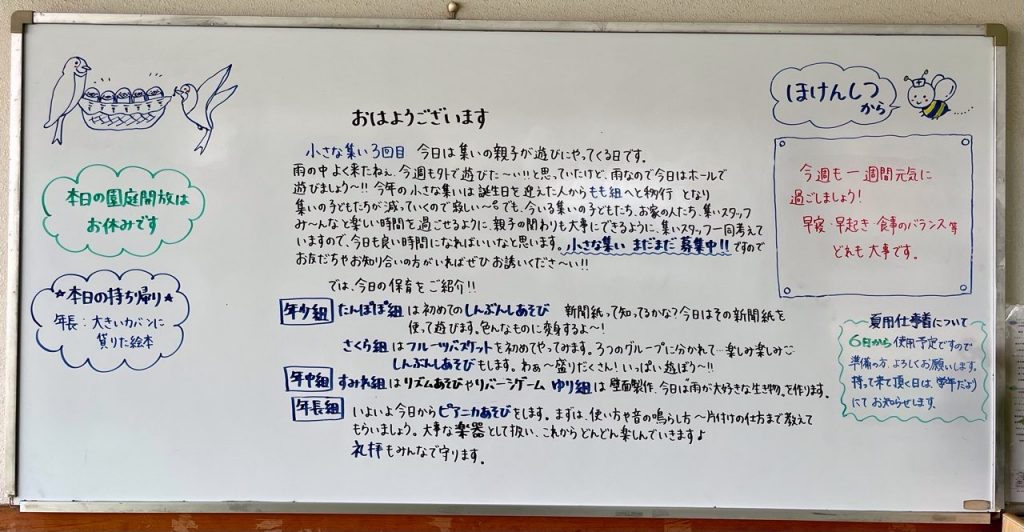 おはようございます
小さな集い3回目 今日は集いの親子が遊びにやってくる日です。
雨の中よく来たねぇ、今週も外で遊びた〜い!!と思っていたけど、雨なので今日はホールで
遊びましょう〜!! 今年の小さな集いは誕生日を迎えた人からもも組へと移行となり
集いの子どもたちが減っていくので寂しい〜。でも、今いる集いの子どもたち、お家の人たち、集いスタッフ
み〜んなと楽しい時間を過ごせるように、親子の関わりも大事にできるように、集いスタッフ一同考えて
いますので、今日も良い時間になればいいなと思います。小さな集い まだまだ募集中!!ですので
お友だちやお知り合いの方がいればぜひお誘いくださ〜い!!
では、今日の保育をご紹介!!
年少組 たんぽぽ組は初めてのしんぶんしあそび 新聞紙って知ってるかな?今日はその新聞紙を
使って遊びます。色んなものに変身するよ〜!
さくら組はフルーツバスケットを初めてやってみます。3つのグループに分かれて…楽しみ楽しみ
しんぶんしあそびもします。わぁ〜盛りだくさん!いっぱい遊ぼう〜!!
年中組 すみれ組はリズムあそびやリバーシゲーム ゆり組は壁面製作、今日は雨が大好きな生き物を作ります。
年長組 いよいよ今日からピアニカあそびをします。まずは、使い方や音の鳴らし方〜片付けの仕方まで教えて
もらいましょう。大事な楽器として扱い、これからどんどん楽しんでいきますよ
礼拝もみんなで守ります。
本日の園庭開放は
お休みです
★本日の持ち帰り★
年長:大きいカバンに
貸りた絵本
ほけんしつ
から
今週も一週間元気に
過ごしましょう!
早寝・早起き・食事のバランス等
どれも大事です。
夏用仕事着について
6月から使用予定ですので
準備の方、よろしくお願いします。
持って来て頂く日は、学年だより
にてお知らせします。